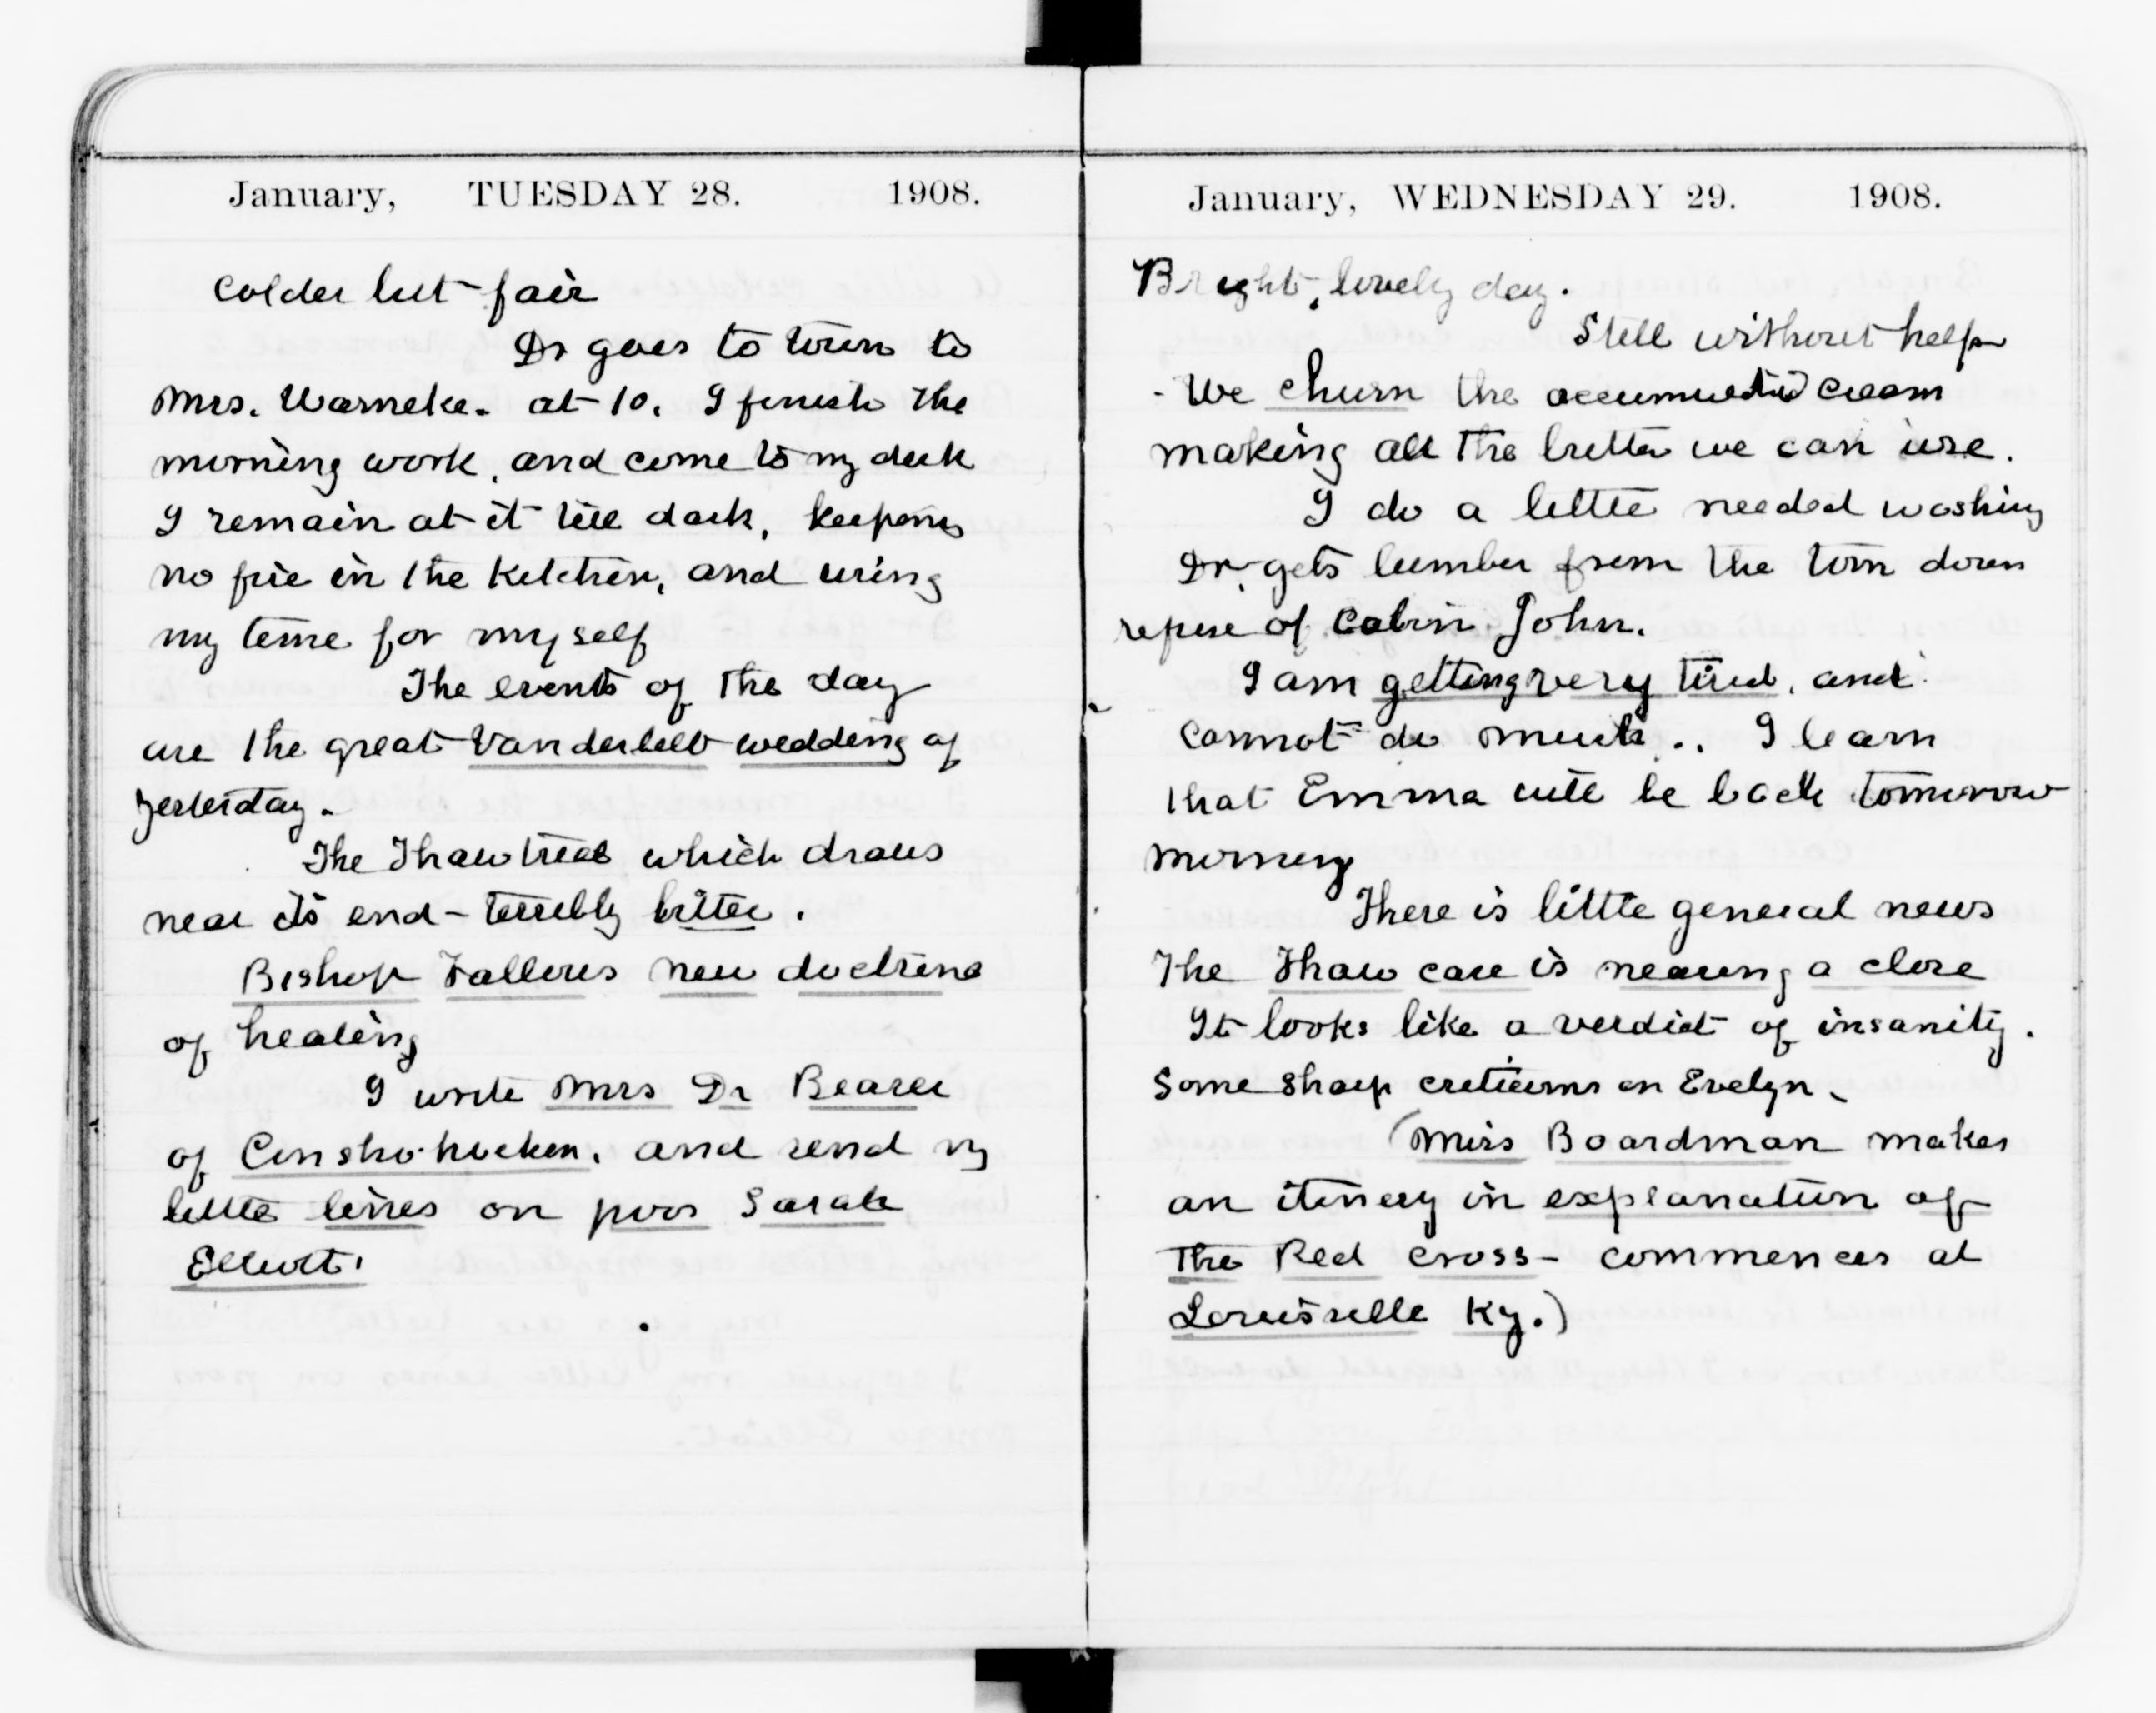 January, TUESDAY 28. 1908.
Colder but fair
Dr goes to town to
Mrs. Warneke. at 10. I finish the
morning work, and come to my desk
I remain at it till dark, keeping
no fire in the kitchen, and using
my time for myself
The events of the day
are the great Vanderbilt wedding of
yesterday.
The Thaw trial which draws
near its end – terribly bitter.
Bishop Fallows new doctrine
of healing
I write Mrs Dr Beaver
of Conshohocken, and send my
little lines on poor Sarah
Elliott.
January, WEDNESDAY 29. 1908.
Bright, lovely day.
Still without help
- We churn the accumulated cream
making all the butter we can use.
I do a little needed washing
Dr. gets lumber from the torn down
of Cabin John.
I am getting very tired, and
cannot do much.. I learn
that Emma will be back tomorrow
morning
There is little general news
The Thaw case is nearing a close
It looks like a verdict of insanity.
Some sharp criticisms on Evelyn.
(Miss Boardman makes
an itinery in explanation of
The Red Cross – commences at
Louisville Ky.)